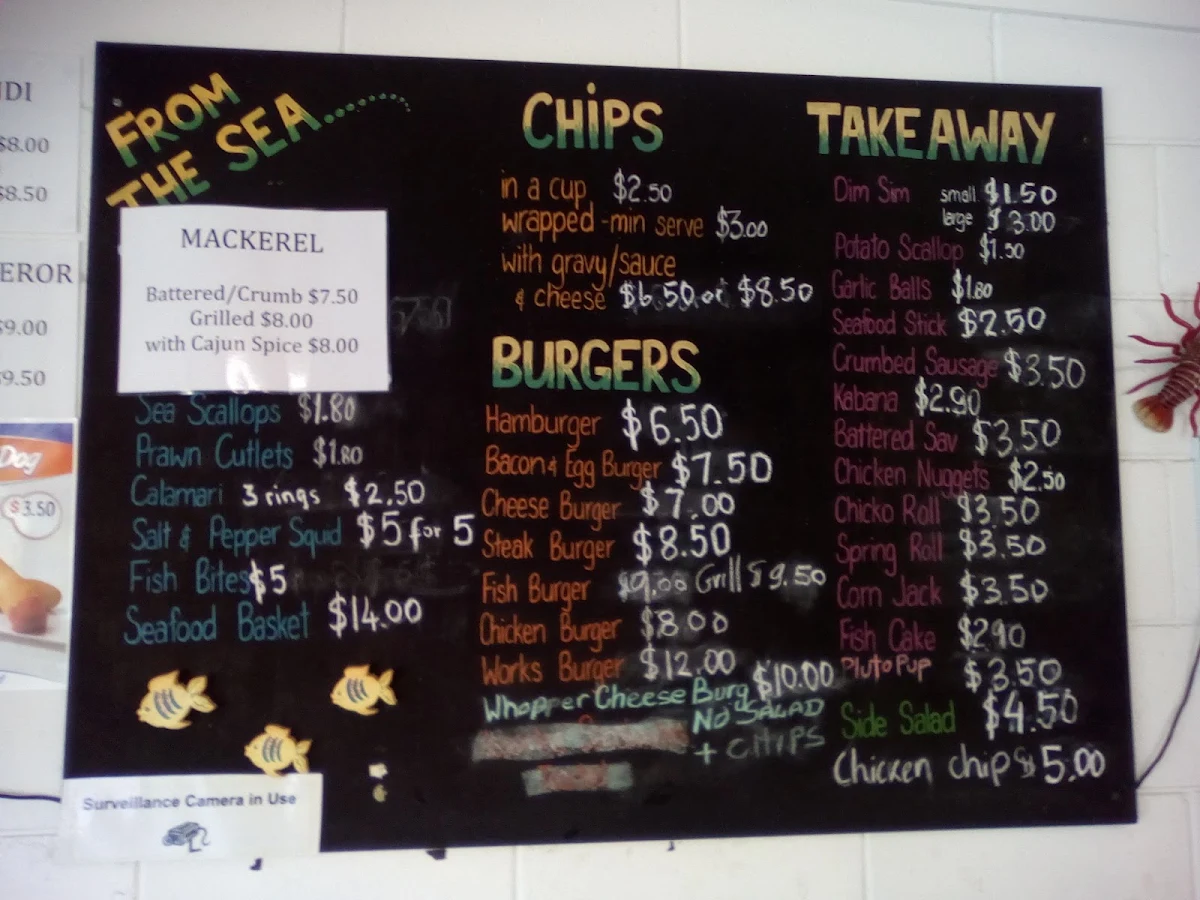 NDI
$8.00
$8.50
EROR
$9.00
$9.50
Dog
$3.50
FROM
THE SEA......
MACKEREL
Battered/Crumb $7.50
Grilled $8.00
with Cajun Spice $8.00
Sea Scallops $1.80
Prawn Cutlets $1.80
Calamari 3 rings $2.50
Salt & Pepper Squid $5 for 5
Fish Bites $5
Seafood Basket $14.00
Surveillance Camera in Use
CHIPS
in a cup $2.50
wrapped -min serve $3.00
with gravy/sauce
& cheese $6.50 or $8.50
BURGERS
Hamburger $6.50
Bacon & Egg Burger $7.50
Cheese Burger $7.00
Steak Burger $8.50
Fish Burger $9.00 Grill $9.50
Chicken Burger $8.00
Works Burger $12.00
Whopper Cheese Burg $10.00
NO SALAD
+ CHIPS
TAKEAWAY
Dim Sim small $1.50
large $3.00
Potato Scallop $1.50
Garlic Balls $1.80
Seafood Stick $2.50
Crumbed Sausage $3.50
Kabana $2.90
Battered Sav $3.50
Chicken Nuggets $2.50
Chicko Roll $3.50
Spring Roll $3.50
Corn Jack $3.50
Fish Cake $2.90
Pluto Pup $3.50
Side Salad $4.50
Chicken chip $5.00